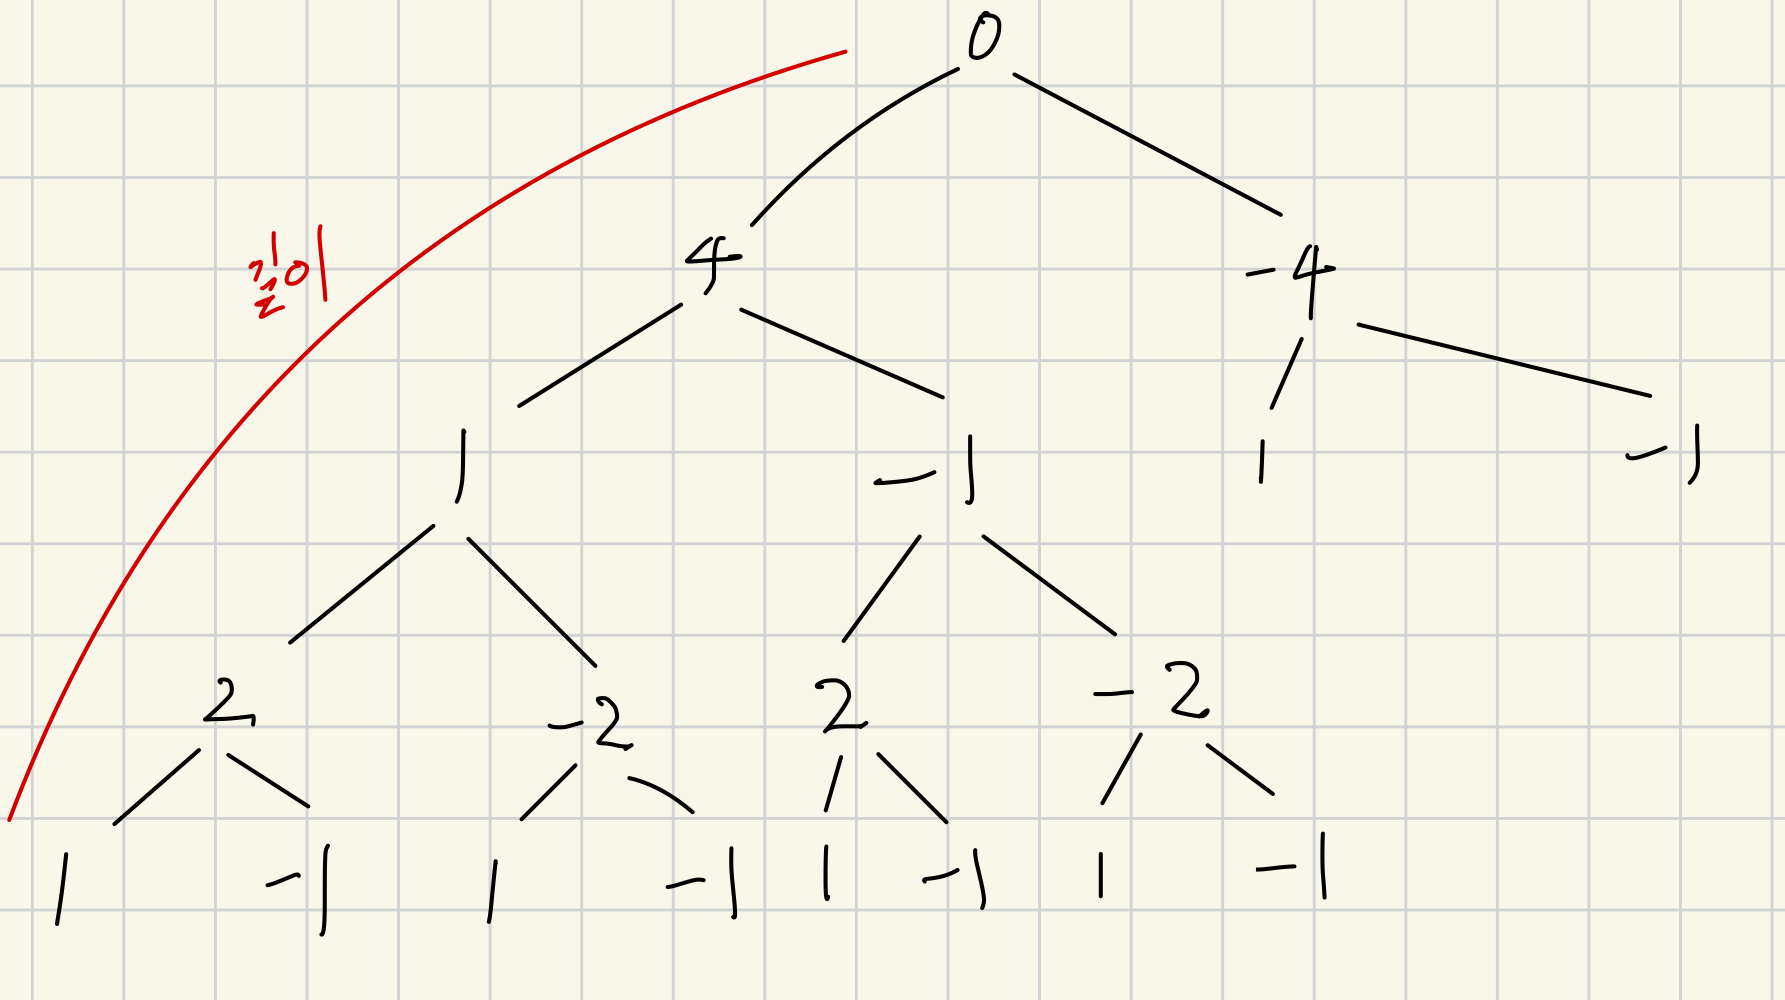 0
4 -4
1 -1 1 -1
2 -2 2 -2
1 -1 1 -1 1 -1 1 -1